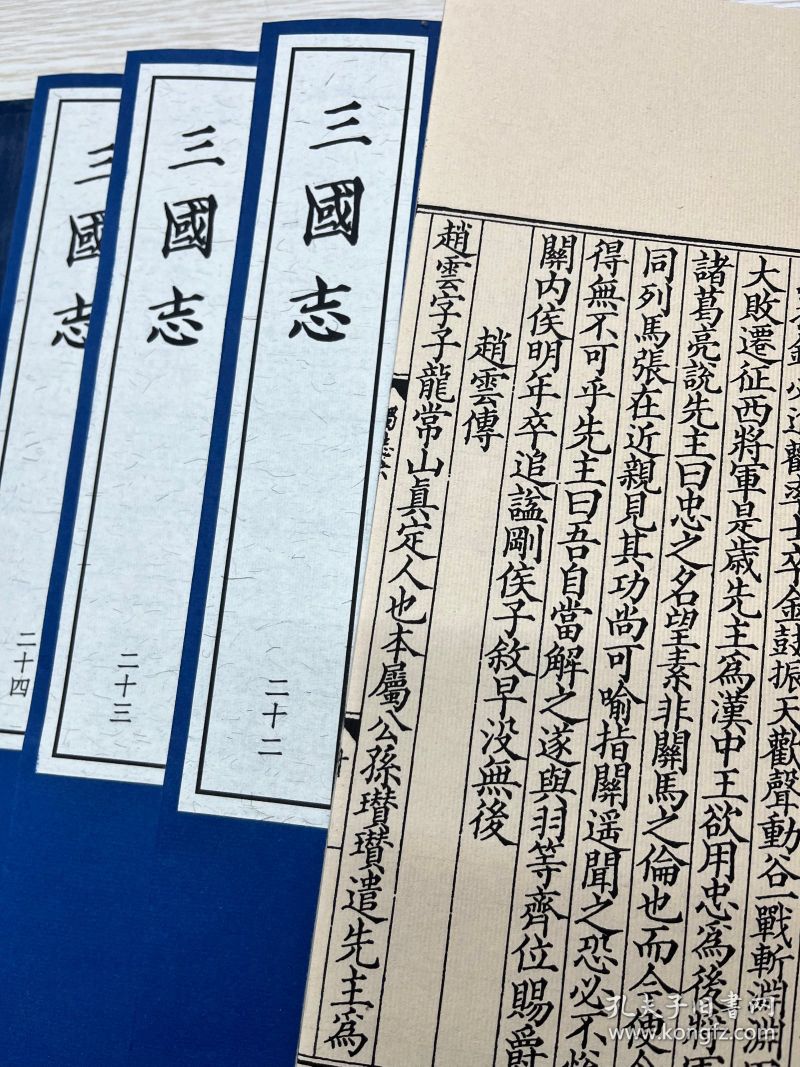 三國志
二十二
三國志
二十三
三國志
二十四
必進勸率士卒金鼓振天歡聲動谷一戰斬淵淵
大敗遷征西將軍是歲先主爲漢中王欲用忠爲後將軍
諸葛亮說先主曰忠之名望素非關馬之倫也而今便令
同列馬張在近親見其功尚可喻指關遥聞之恐必不悅
得無不可乎先主曰吾自當解之遂與羽等齊位賜爵
關内侯明年卒追謚剛侯子敘早没無後
趙雲傳
趙雲字子龍常山真定人也本屬公孫瓚瓚遣先主爲
孔夫子旧书网
www.kongfz.com